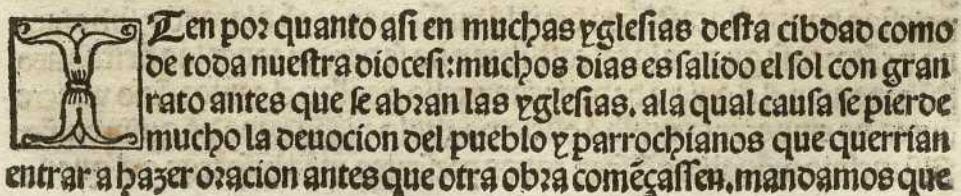 ITen por quanto asi en muchas yglesias desta cibdad como
de toda nuestra diocesi: muchos dias es salido el sol con gran
rato antes que se abran las yglesias. ala qual causa se pierde
mucho la deuocion del pueblo y parrochianos que querrian
entrar a hazer oracion antes que otra obra comẽçassen. mandamos que